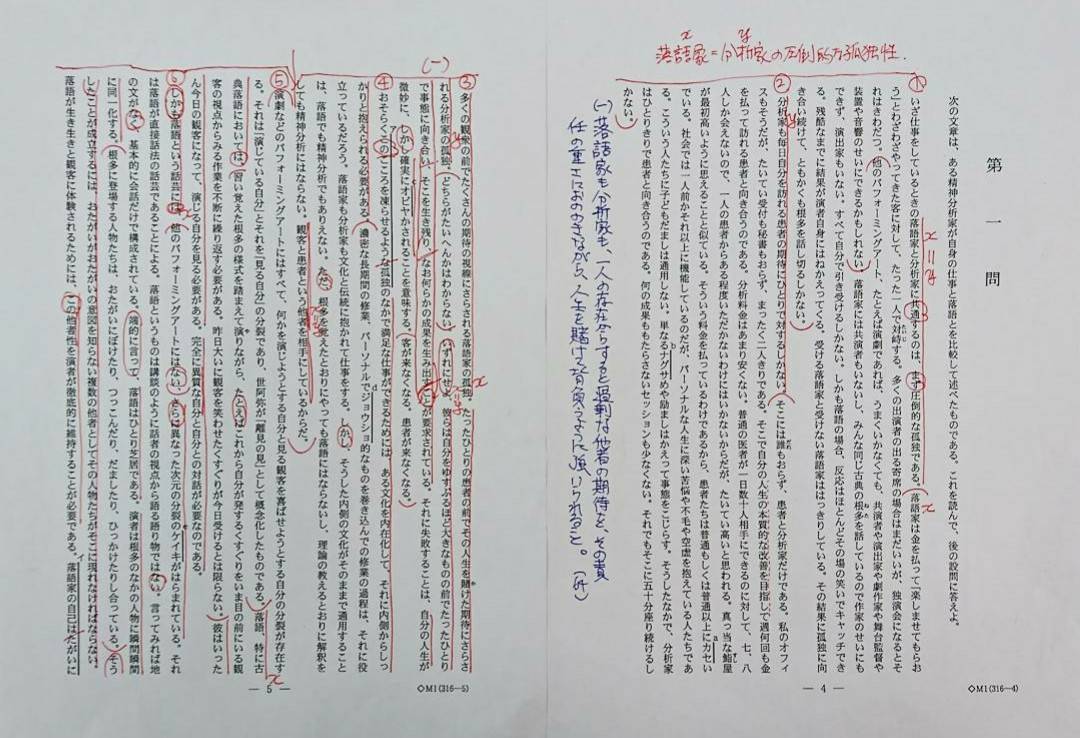 第一問
次の文章は、ある精神分析家が自身の仕事と落語とを比較して述べたものである。これを読んで、後の設問に答えよ。
x y
落語家=分析家の圧倒的な孤独性.
①
いざ仕事をしているときの落語家と分析家に共通するのは、まず圧倒的な孤独である。落語家は金を払って「楽しませてもらお
う」とわざわざやってきた客に対して、たった一人で対峙する。多くの出演者の出る寄席の場合はまだいいが、独演会になるとそ
れはきわだつ。他のパフォーミングアート、たとえば演劇であれば、うまくいかなくても、共演者や演出家や劇作家や舞台監督や
装置や音響のせいにできるかもしれない。落語家には共演者もいないし、みんな同じ古典の根多を話しているので作家のせいにも
できず、演出家もいない。すべて自分で引き受けるしかない。しかも落語の場合、反応はほとんどその場の笑いでキャッチでき
る。残酷なまでに結果が演者自身にはねかえってくる。受ける落語家と受けない落語家ははっきりしている。その結果に孤独に向
き合い続けて、ともかくも根多を話し切るしかない。
②
分析家も毎日自分を訪れる患者の期待にひとりで対するしかない。そこには誰もおらず、患者と分析家だけである。私のオフィ
スもそうだが、たいてい受付も秘書もおらず、まったく二人きりである。そこで自分の人生の本質的な改善を目指して週何回も金
を払って訪れる患者と向き合うのである。分析料金はあまり安くない。普通の医者が一日数十人相手にできるのに対して、七、八
人しか会えないので、一人の患者からある程度いただかないわけにはいかないからだが、たいてい高いと思われる。真っ当な鮨屋
が最初高いように思えることと似ている。そういう料金を払っているわけであるから、患者たちは普通もしくは普通以上にカセい
でいる。社会では一人前かそれ以上に機能しているのだが、パーソナルな人生に深い苦悩や不毛や空虚を抱えている人たちであ
る。こういう人たちに子どもだましは通用しない。単なるナグサめや励ましはかえって事態をこじらす。そうしたなかで、分析家
はひとりきりで患者と向き合うのである。何の成果ももたらさないセッションも少なくない。それでもそこに五十分座り続けるし
かない。
(一)落語家も分析家も、一人の存在からすると過剰な他者の期待を、その責
任の重さにおののきながら、人生を賭けて背負うように強いられること。
— 4 —
◇M1(316—4)
(一)
③
多くの観衆の前でたくさんの期待の視線にさらされる落語家の孤独。たったひとりの患者の前でその人生を賭けた期待にさらさ
れる分析家の孤独。どちらがたいへんかはわからない。いずれにせよ、彼らは自分をゆすぶるほど大きなものの前でたったひとり
で事態に向き合い、そこを生き残り、なお何らかの成果を生み出すことが要求されている。それに失敗することは、自分の人生が
微妙に、しかし確実にオビヤかされることを意味する。客が来なくなる。患者が来なくなる。
④
おそらくこのこころを凍らせるような孤独のなかで満足な仕事ができるためには、ある文化を内在化して、それに内側からしっ
かりと抱えられる必要がある。濃密な長期間の修業、パーソナルでジョウショ的なものを巻き込んでの修業の過程は、それに役
立っているだろう。落語家も分析家も文化と伝統に抱かれて仕事をする。しかし、そうした内側の文化がそのままで通用すること
は、落語でも精神分析でもありえない。ただ、根多を覚えたとおりにやっても落語にはならないし、理論の教えるとおりに解釈を
しても精神分析にはならない。観客と患者という他者を相手にしているからだ。
⑤
演劇などのパフォーミングアートにはすべて、何かを演じようとする自分と見る観客を喜ばせようとする自分の分裂が存在す
る。それは「演じている自分」とそれを「見る自分」の分裂であり、世阿弥が「離見の見」として概念化したものである。落語、特に古
典落語においては、習い覚えた根多の様式を踏まえて演りながら、たとえばこれから自分が発するくすぐりをいま目の前にいる観
客の視点からみる作業を不断に繰り返す必要がある。昨日大いに観客を笑わせたくすぐりが今日受けるとは限らない。彼はいった
ん今日の観客になって、演じる自分を見る必要がある。完全に異質な自分と自分との対話が必要なのである。
⑥
しかも落語という話芸には、他のパフォーミングアートにはない、さらに異なった次元の分裂のケイキがはらまれている。それ
は落語が直接話法の話芸であることによる。落語というものは講談のように話者の視点から語る語り物ではない。言ってみれば地
の文がなく、基本的に会話だけで構成されている。端的に言って、落語はひとり芝居である。演者は根多のなかの人物に瞬間瞬間
に同一化する。根多に登場する人物たちは、おたがいにぼけたり、つっこんだり、だましたり、ひっかけたりし合っている。そう
したことが成立するには、おたがいがおたがいの意図を知らない複数の他者としてその人物たちがそこに現れなければならない。
落語が生き生きと観客に体験されるためには、この他者性を演者が徹底的に維持することが必要である。落語家の自己はたがいに
— 5 —
◇M1(316—5)